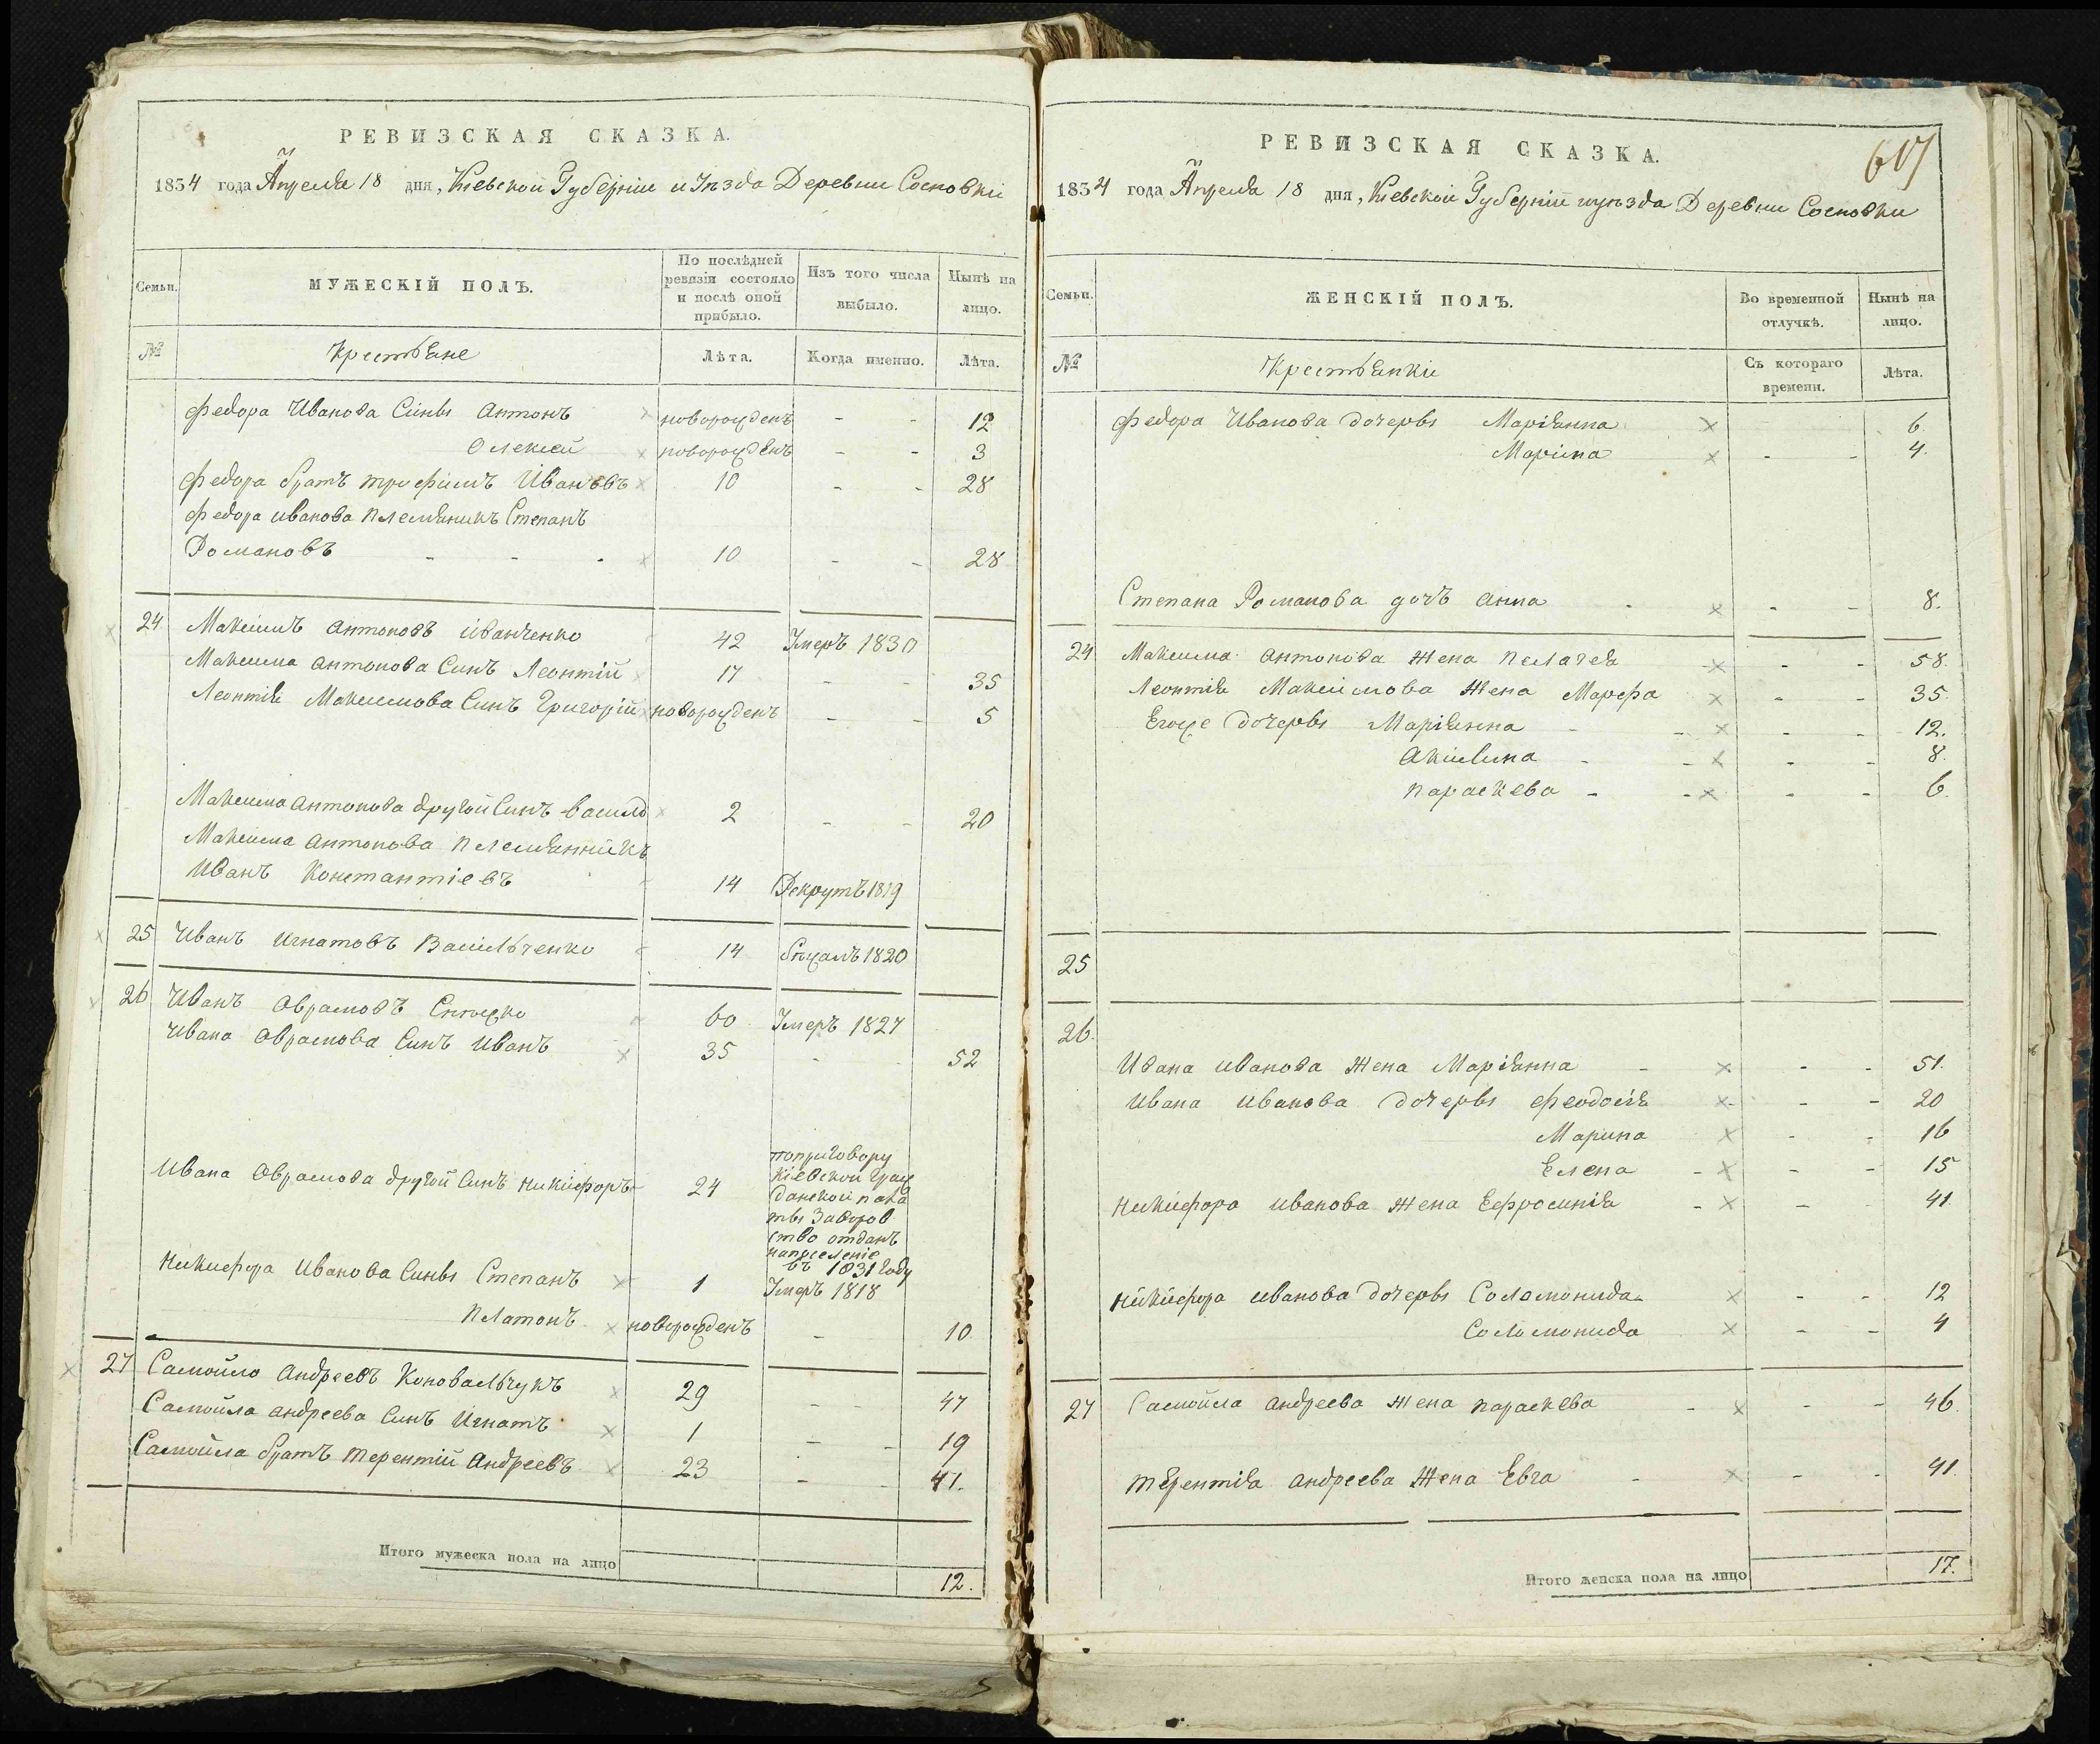 РЕВИЗСКАЯ СКАЗКА.
1834 года Апреля 18 дня, Киевской Губерніи и Уезда Деревни Сосновки
Семьи.
МУЖЕСКІЙ ПОЛЪ.
По послѣдней ревизіи состояло и послѣ оной прибыло.
Изъ того числа выбыло.
Нынѣ на лицо.
№
Крестьяне
Лѣта.
Когда именно.
Лѣта.
Федора Иванова Сины Антонъ новорожденъ - - 12
Олексей новорожденъ - - 3
Федора братъ трофимъ Ивановъ 10 - - 28
Федора иванова племяникъ Степанъ
Романовъ - - . 10 - - 28
24 Максимъ Антоновъ иванченко 42 Умеръ 1830
Максима Антонова Синъ Леонтій 17 - - 35
Леонтія Максимова Синъ Григорій новорожденъ - - 5
Максима Антонова другой Синъ василь 2 - - 20
Максима Антонова племянникъ
Иванъ Константіевъ 14 Рекрутъ 1819
25 Иванъ Игнатовъ Васильченко 14 бежалъ 1820
26 Иванъ Аврамовъ 60 Умеръ 1827
Ивана Аврамова Синъ Иванъ 35 - - 52
Ивана Аврамова другой Синъ никифоръ 24
поприговору
Кіевской Граж
данской пала
ты Заворов
ство отданъ
напоселеніе
въ 1831 году
Никифора Иванова Сины Степанъ 1 Умеръ 1818
Платонъ новорожденъ - 10
27 Самойло Андреевъ Коновальчукъ 29 - - 47
Самойла андреева Синъ Игнатъ 1 - - 19
Самойла братъ терентій Андреевъ 23 - - 41.
Итого мужеска пола на лицо 12.
617
РЕВИЗСКАЯ СКАЗКА.
1834 года Апреля 18 дня, Киевской Губерніи иуезда Деревни Сосновки
Семьи.
ЖЕНСКІЙ ПОЛЪ.
Во временной отлучкѣ.
Нынѣ на лицо.
№
Крестьянки
Съ котораго времени.
Лѣта.
Федора Иванова дочеры Маріянна 6
Марина - - 4.
Степана Романова дочъ Анна - - 8.
24 Максима Антонова жена пелагея - - 58.
Леонтія Максимова жена Марфа - - 35.
Егоже дочеры Маріянна - - 12.
Акилина - - 8.
параскева - - 6.
25
26.
Ивана иванова жена Маріянна - - 51.
Ивана иванова дочеры феодосія - - 20
Марина - - 16
Елена - - 15
никифора иванова жена Ефросинія - - 41.
никифора иванова дочеры Соломонида - - 12
Соломонида - - 4
27 Самойла андреева жена параскева - - 46.
терентія андреева жена Евга - - 41.
Итого женска пола на лицо 17.